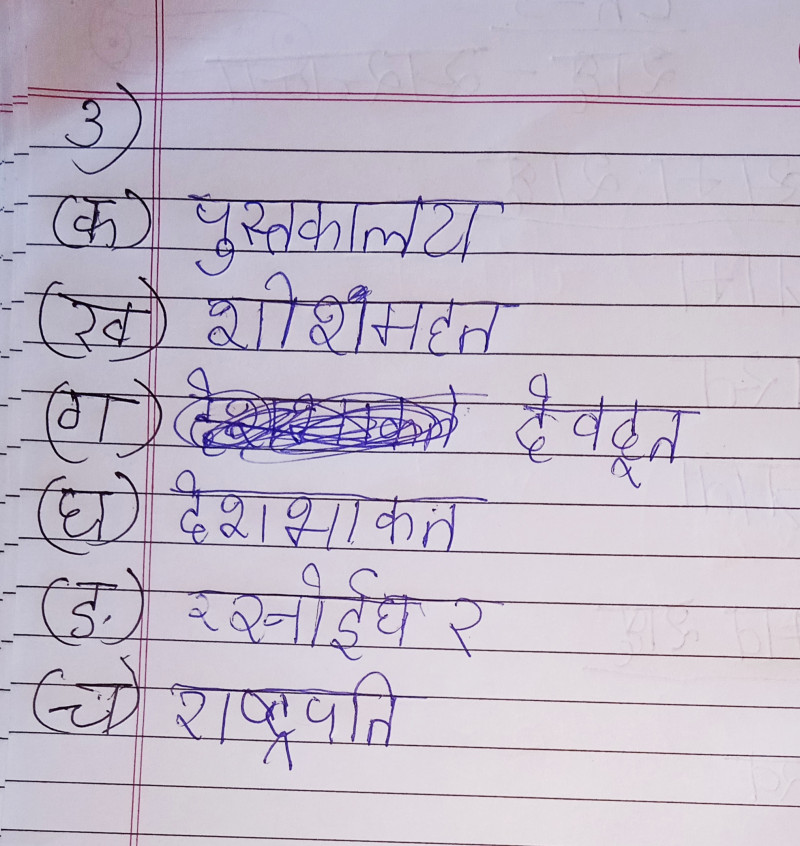 3)
(क) पुस्तकालय
(ख) शीशमहल
(ग) देवदूत
(घ) देशभाकत
(ङ) रसोईघर
(च) राष्ट्रपति